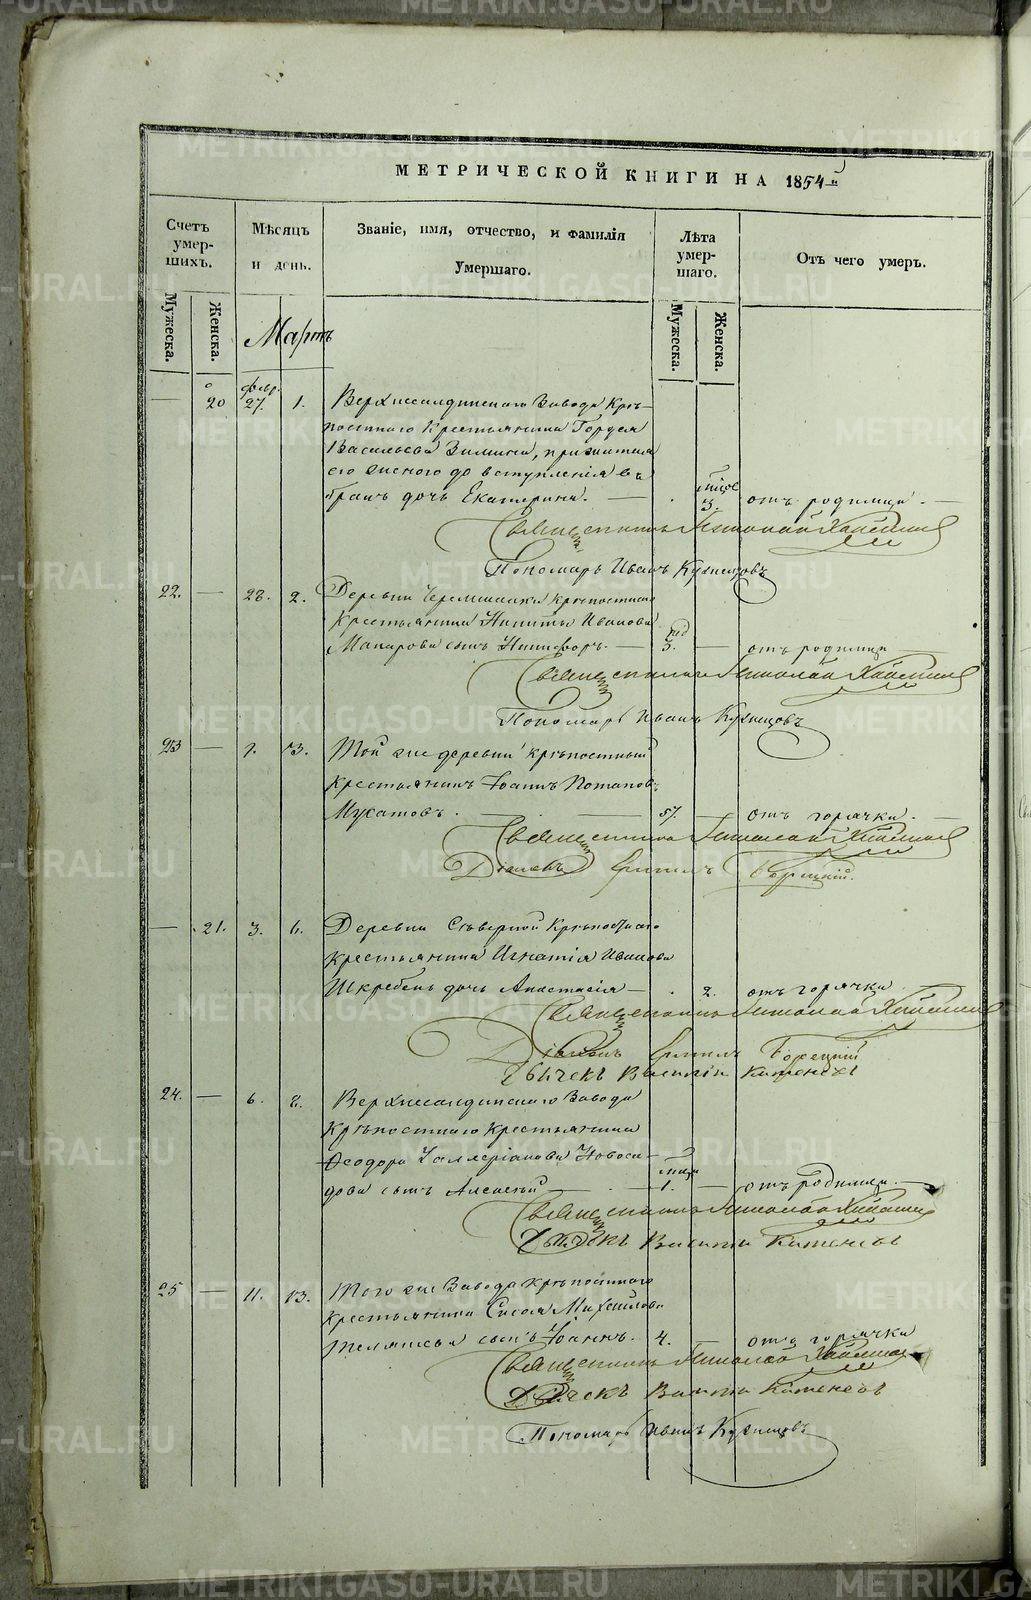 МЕТРИЧЕСКОЙ КНИГИ НА 1854й
Счетъ умер-шихъ.
Мѣсяцъ и день.
Званіе, имя, отчество, и фамилія Умершаго.
Лѣта умер-шаго.
Отъ чего умеръ.
Мужеска.
Женска.
Мужеска.
Женска.
Мартъ
— 20 февр. 27. 1. Верхнесалдинскаго Завода крѣ-
постнаго крестьянина
Васильева Зимина, прижитая
его женою до вступленія въ
бракъ дочь Екатерина. — 3. отъ родимца. —
Священникъ Николай
Пономарь Иванъ Кузнецовъ
22. — 28. 2. Деревни крѣпостнаго
крестьянина Никиты Иванова
Макарова сынъ Никифоръ. — 3. — отъ родимца
Священникъ Николай
Пономарь Иванъ Кузнецовъ
23 — 1. 3. Той же деревни крѣпостный
крестьянинъ Іоаннъ Потапов.
Мухатовъ. — 57. — отъ горячки. —
Священникъ Николай
Діаконъ
— 21. 3. 6. Деревни Сѣверной крѣпостнаго
крестьянина Игнатія Иванова
дочь Анастасія — 2. отъ горячки
Священникъ Николай
Діаконъ
Дьячекъ Василій
24. — 6. 8. Верхнесалдинскаго Завода
крѣпостнаго крестьянина
Ѳеодора Новосе-
лова сынъ Алексѣй — 1. — отъ родимца. —
Священникъ Николай
Дьячекъ Василій
25 — 11. 13. Того же Завода крѣпостнаго
крестьянина Михайлова
сынъ Іоаннъ. 4. — отъ горячки
Священникъ Николай
Дьячекъ Василій
Пономарь Иванъ Кузнецовъ
METRIKI.GASO-URAL.RU